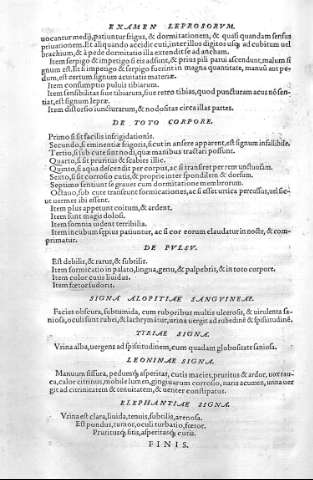 EXAMEN LEPROSORVM.
uocantur medij, patiuntur frigus, & dormitationem, & quasi quendam sensus
priuationem. Et aliquando accidit cuti, inter illos digitos usq; ad cubitum uel
brachium, & à pede dormitatio illa extendit se ad ancham.
Item serpigo & impetigo si eis adsunt, & prius pili parui ascendunt, malum si
gnum est. Sit & impetigo & serpigo fuerint in magna quantitate, manuū aut pe
dum, est certum signum acuitatis materiæ.
Item consumptio pulpis tibiarum.
Item sensibilitas siue tibiarum, siue retro tibias, quod punctturam acus nō sen-
tiat, est signum lepræ.
Item distorsio iuncturarum, & nodositas circa illas partes.
DE TOTO CORPORE.
Primo si sit facilis infrigidationis.
Secundo, si eminentiæ frigoris, sicut in ansere apparent, est signum infallibile.
Tertio, si sub cute sunt nodi, quæ manibus tractari possunt.
Quarto, si sit pruritus & scabies illic.
Quinto, si aqua descendit per corpus, ac si transiret per rem unctuosam.
Sexto, si sit corrosio cutis, & proprie inter spondilem & dorsum.
Septimo sentiunt se graues cum dormitatione membrorum.
Octauo, sub cute transeunt formicationes, ac si esset urtica percussus, uel sic-
ut uermes ibi essent.
Item plus appetunt coitum, & ardent.
Item sunt magis dolosi.
Item somnia uident terribilia.
Item incubum sæpius patiuntur, ac si cor eorum claudatur in nocte, & com-
primatur.
DE PVLSV.
Est debilis, & rarus, & subtilis.
Item formicatio in palato, lingua, genu, & palpebris, & in toto corpore.
Item color cutis liuidus.
Item fœtor sudoris.
SIGNA ALOPITIAE SANGVINEAE.
Facies obscura, subtumida, cum ruboribus multis ulcerosis, & uirulenta sa-
niosa, oculi sunt rubei, & lachrymātur, urina uergit ad rubedinē & spissitudinē.
TYRIAE SIGNA.
Vrina alba, uergens ad spissitudinem, cum quadam globositate saniosa.
LEONINAE SIGNA.
Manuum fissura, pedumq; asperitas, cutis macies, pruritus & ardor, uox rau-
ca, calor citrinus, mobile lumen, gingiuarum corrosio, naris acumen, urina uer
git ad citrinitatem & tenuitatem, & uenter constipatus.
ELEPHANTIAE SIGNA.
Vrina est clara, liuida, tenuis, subtilis, arenosa.
Est pondus, tumor, oculi turbatio, fœtor.
Pruritusq; sitis, asperitasq; cutis.
FINIS.